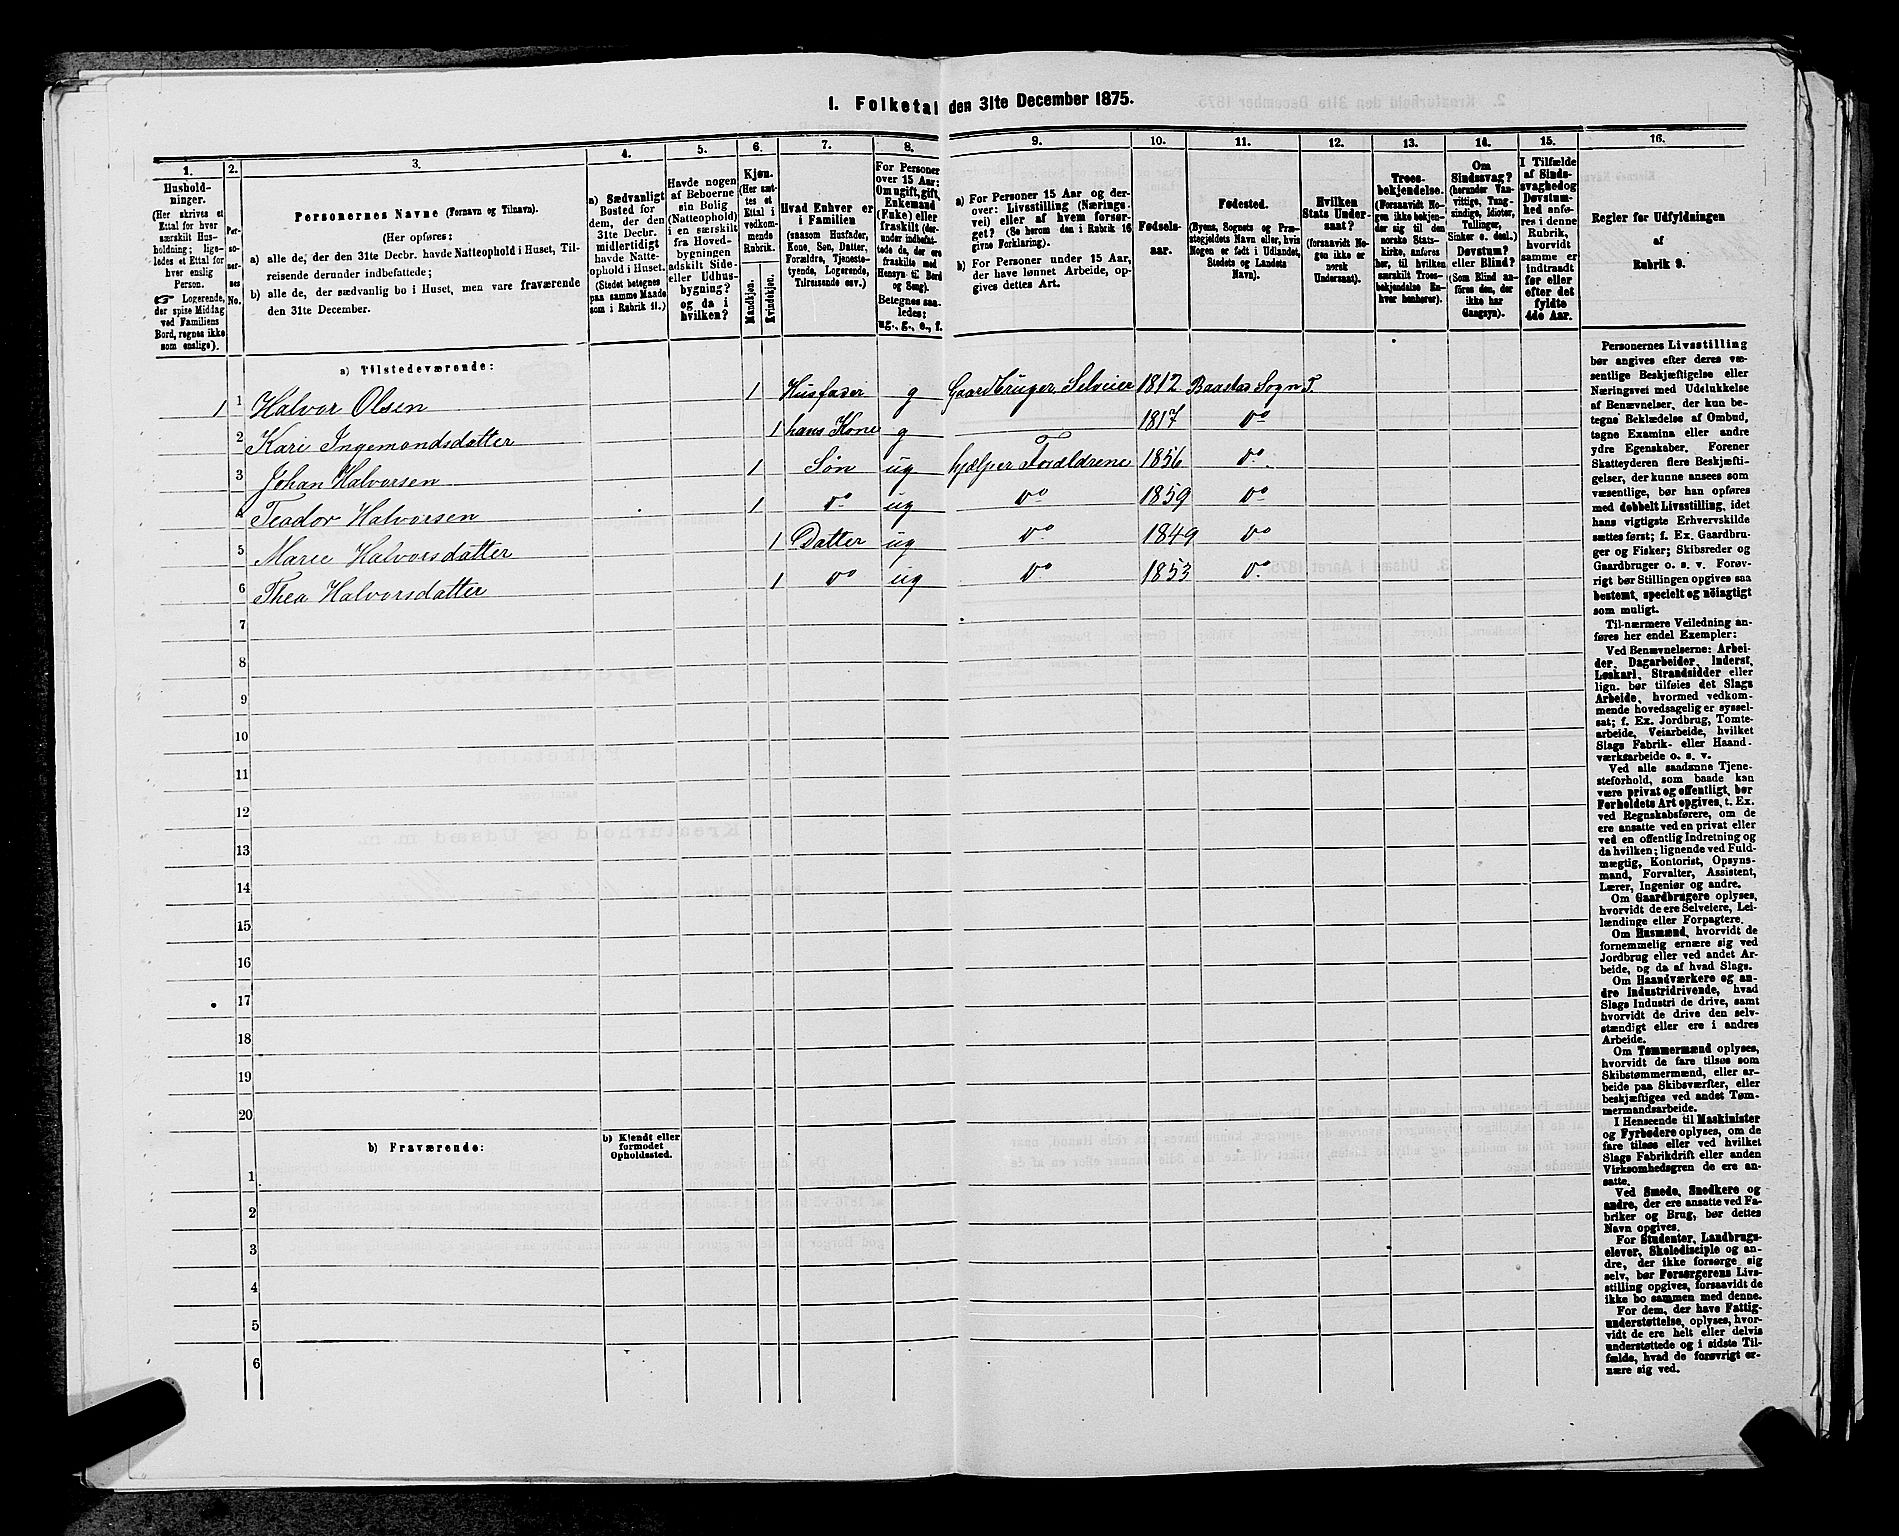 1. Folketal den 31te December 1875.
1.
2.
3.
4.
5.
6.
7.
8.
9.
10.
11.
12.
13.
14.
15.
16.
Hushold-
ninger.
(Her skrives et
Ettal for hver
særskilt Hus-
holdning; lige-
ledes et Ettal for
hver enslig
Person.
☞ Logerende,
der spise Middag
ved Familiens
Bord, regnes ikke
som enslige).
Per-
so-
ner-
nes
No.
Personernes Navne (Fornavn og Tilnavn).
(Her opføres:
a) alle de, der den 31te Decbr. havde Natteophold i Huset, Til-
reisende derunder indbefattede;
b) alle de, der sædvanlig bo i Huset, men vare fraværende
den 31te December.
a) Sædvanligt
Bosted for
dem, der den
31te Decbr.
midlertidigt
havde Natte-
ophold i Huset.
(Stedet betegnes
paa samme Maade
som i Rubrik 11.)
Havde nogen
af Beboerne
sin Bolig
(Natteophold)
i en særskilt
fra Hoved-
bygningen
adskilt Side-
eller Udhus-
bygning?
og da i
hvilken?
Kjøn.
(Her sæt-
tes et
Ettal i
vedkom-
mende
Rubrik.
Mandkjøn.
Kvindekjøn.
Hvad Enhver er
i Familien
(saasom Husfader,
Kone, Søn, Datter,
Forældre, Tjeneste-
tyende, Logerende,
Tilreisende osv.)
For Personer
over 15 Aar:
Om ugift, gift,
Enkemand
(Enke) eller
fraskilt (der-
under indbefat-
tede de, der ere
fraskilte med
Hensyn til Bord
og Seng).
Betegnes saa-
ledes:
ug., g., e., f.
a) For Personer 15 Aar og der-
over: Livsstilling (Nærings-
vei) eller af hvem forsør-
get? (Se herom den i Rubrik 16
givne Forklaring).
b) For Personer under 15 Aar,
der have lønnet Arbeide, op-
gives dettes Art.
Fødsels-
aar.
Fødested.
(Byens, Sognets og Præ-
stegjeldets Navn eller, hvis
Nogen er født i Udlandet,
Stedets og Landets
Navn).
Hvilken
Stats Under-
saat?
(forsaavidt No-
gen ikke er
norsk
Undersaat).
Troes-
bekjendelse.
(Forsaavidt No-
gen ikke bekjen-
der sig til den
norske Stats-
kirke, anføres
her, til hvilken
særskilt Troes-
bekjendelse En-
hver henhører).
Om
Sindssvag?
(herunder Van-
vittige, Tung-
sindige, Idioter,
Tullinger,
Sinker o. desl.)
Døvstum?
eller Blind?
(Som Blind an-
føres den, der
ikke har
Gangsyn).
I Tilfælde
af Sinds-
svaghed og
Døvstum-
hed anfø-
res i denne
Rubrik,
hvorvidt
samme er
indtraadt
før eller
efter det
fyldte
4de Aar.
Regler for Udfyldningen
af
Rubrik 9.
a) Tilstedeværende:
1 1 Halvor Olsen 1 Husfader g Gaardbruger Selveier 1812 Baastad Sogn T.
2 Kari Ingemandsdatter 1 hans Kone g 1817 do
3 Johan Halvorsen 1 Søn ug hjælper Forældrene 1856 do
4 Teodor Halvorsen 1 do ug do 1859 do
5 Marie Halvorsdatter 1 Datter ug do 1849 do
6 Thea Halvorsdatter 1 do ug do 1853 do
7
8
9
10
11
12
13
14
15
16
17
18
19
20
b) Fraværende:
b) Kjendt eller
formodet
Opholdssted.
1
2
3
4
5
6
Personernes Livsstilling
bør angives efter deres væ-
sentlige Beskjæftigelse eller
Næringsvei med Udelukkelse
af Benævnelser, der kun be-
tegne Beklædelse af Ombud,
tagne Examina eller andre
ydre Egenskaber. Forener
Skatteyderen flere Beskjæfti-
gelser, der kunne ansees som
væsentlige, bør han opføres
med dobbelt Livsstilling, idet
hans vigtigste Erhvervskilde
sættes først; f. Ex. Gaardbru-
ger og Fisker; Skibsreder og
Gaardbruger o. s. v. Forøv-
rigt bør Stillingen opgives saa
bestemt, specielt og nöiagtigt
som muligt.
Til nærmere Veiledning an-
føres her endel Exempler:
Ved Benævnelserne: Arbei-
der, Dagarbeider, Inderst,
Løskarl, Strandsidder eller
lign. bør tilføies det Slags
Arbeide, hvormed vedkom-
mende hovedsagelig er syssel-
sat; f. Ex. Jordbrug, Tomte-
arbeide, Veiarbeide, hvilket
Slags Fabrik- eller Haand-
værksarbeide o. s. v.
Ved alle saadanne Tjene-
steforhold, som baade kan
være privat og offentligt, bør
Forholdets Art opgives, t. Ex.
ved Regnskabsførere, om de
ere ansatte ved en privat eller
ved en offentlig Indretning og
da hvilken; lignende ved Fuld-
mægtig, Kontorist, Opsyns-
mand, Forvalter, Assistent,
Lærer, Ingeniør og andre.
Om Gaardbrugere oplyses,
hvorvidt de ere Selveiere, Lei-
lændinge eller Forpagtere.
Om Husmænd, hvorvidt de
fornemmelig ernære sig ved
Jordbrug eller ved andet Ar-
beide, og da af hvad Slags.
Om Haandværkere og an-
dre Industridrivende, hvad
Slags Industri de drive, samt
hvorvidt de drive den selv-
stændigt eller ere i andres
Arbeide.
Om Tømmermænd oplyses,
hvorvidt de fare tilsøs som
Skibstømmermænd, eller ar-
beide paa Skibsværfter, eller
beskjæftiges ved andet Tøm-
mermandsarbeide.
I Henseende til Maskinister
og Fyrbødere oplyses, om de
fare tilsøs eller ved hvilket
Slags Fabrikdrift eller anden
Virksomhedsgren de ere an-
satte.
Ved Smede, Snedkere og
andre, der ere ansatte ved Fa-
briker og Brug, bør dettes
Navn opgives.
For Studenter, Landbrugs-
elever, Skoledisciple og an-
dre, der ikke forsørge sig
selv, bør Forsørgerens Livs-
stilling opgives, forsaavidt de
ikke bo sammen med denne.
For dem, der have Fattig-
understøttelse, oplyses, hvor-
vidt de ere helt eller delvis
understøttede og i sidste Til-
fælde, hvad de forøvrigt er-
nære sig ved.